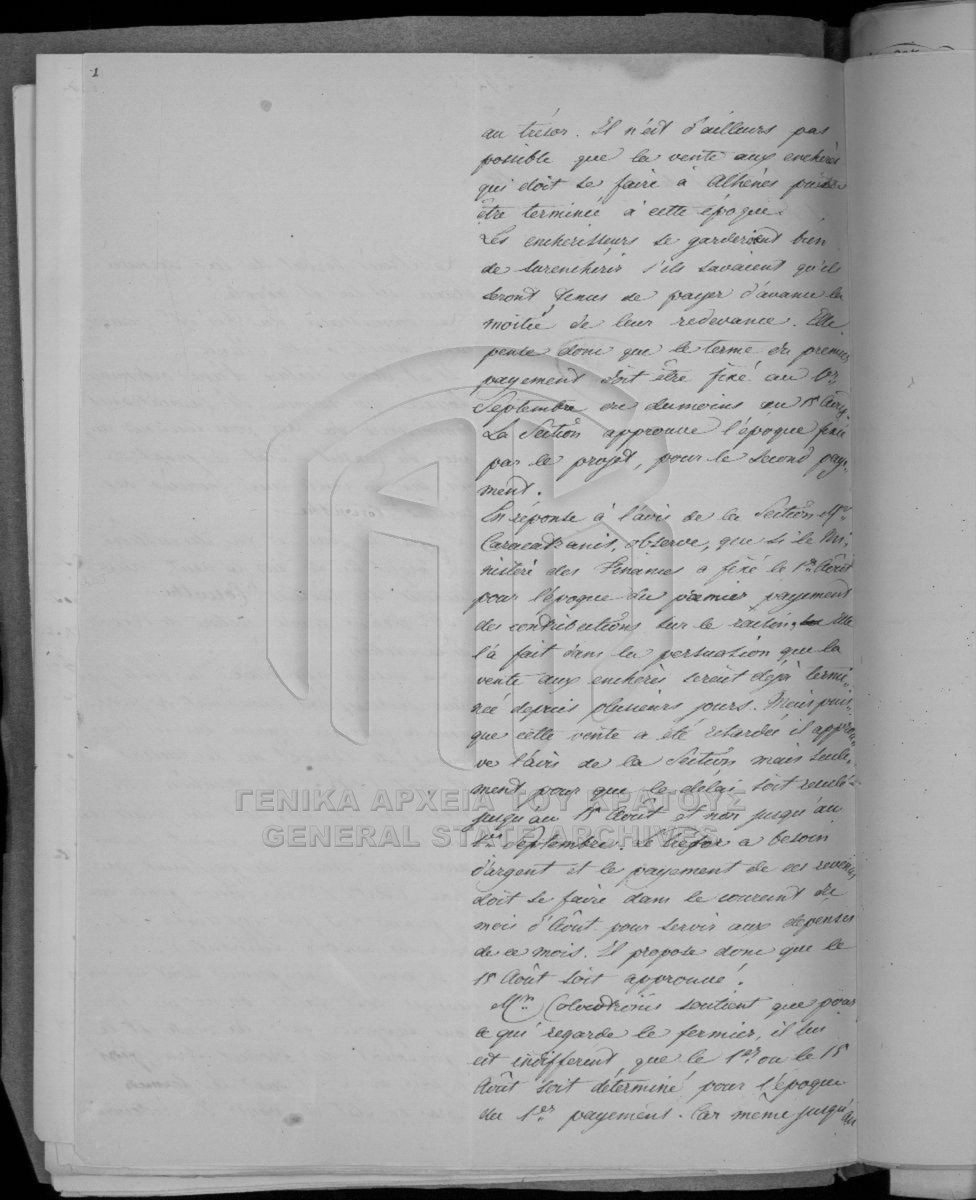 1
au trésor. Il n'est d'ailleurs pas
possible que la vente aux enchères
qui doit se faire à Athènes puisse
être terminée à cette époque.
Les enchérisseurs se garderoient bien
de surenchérir s'ils savaient qu'ils
seront tenus de payer d'avance la
moitié de leur redevance. Elle
pense donc que le terme du premier
payement doit être fixé au 1er
Septembre ou dumoins au 15 Août.
La Section approuve l'époque fixée
par le projet, pour le second paye-
ment.
En réponse à l'avis de la Section Mr
Caracatzanis, observe, que si le Mi-
nistère des Finances a fixé le 1er Août
pour l'époque du premier payement
des contributions sur le raisin, Elle
l'a fait dans la persuasion que la
vente aux enchères seroit déjà termi-
née depuis plusieurs jours. Mais puis-
que cette vente a été retardée il approu-
ve l'avis de la Section mais seule-
ment pour que le délai soit reculé
jusqu'au 15 Août et non jusqu'au
1er Septembre. Le trésor a besoin
d'argent et le payement de ces revenus
doit se faire dans le courant du
mois d'Août pour servir aux dépenses
de ce mois. Il propose donc que le
15 Août soit approuvé.
Mr. Colocotronis soutient que pour
ce qui regarde le fermier, il lui
est indifférent que le 1er ou le 15
Août soit déterminé pour l'époque
du 1er payement. Car même jusqu'au
ΓΕΝΙΚΑ ΑΡΧΕΙΑ ΤΟΥ ΚΡΑΤΟΥΣ
GENERAL STATE ARCHIVES